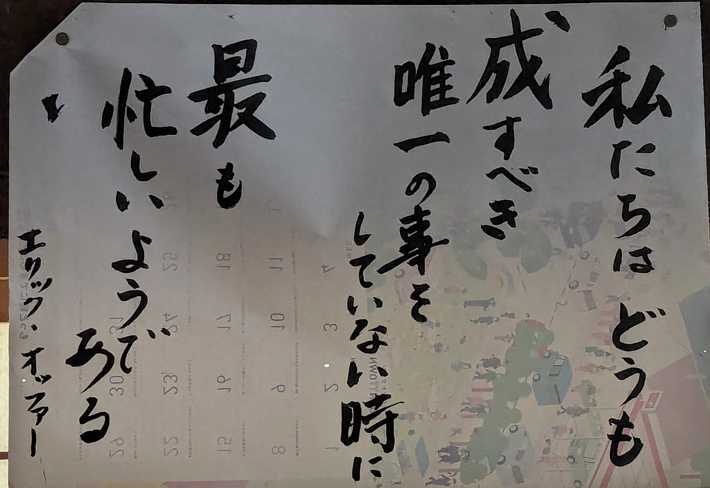 私たちはどうも
成すべき
唯一の事を
していない時に
最も
忙しいようで
ある
エリック・オッファー